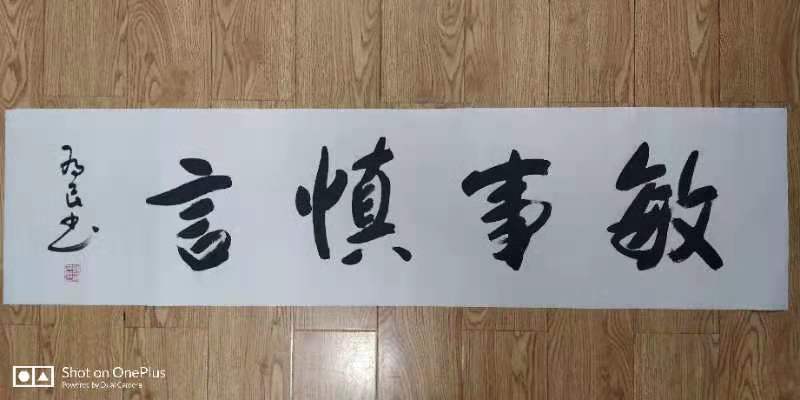 敏事慎言
为民书
Shot on OnePlus
Powered by Dual Camera